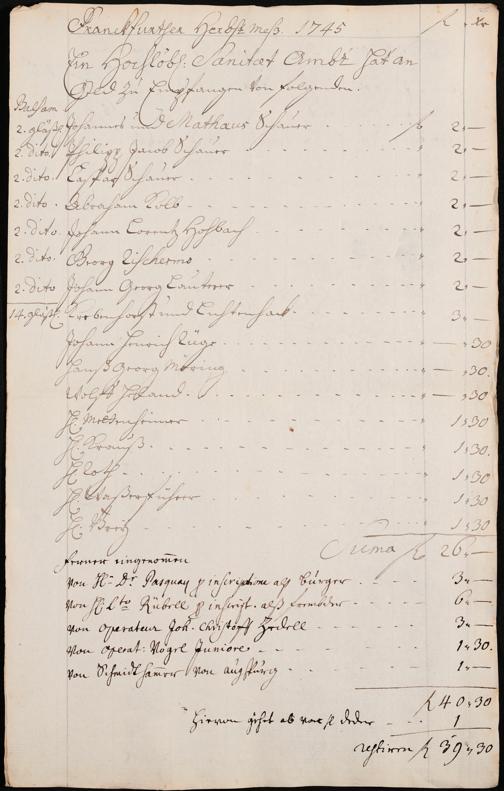 Franckfurther Herbst Mess. 1745 f xr
Ein Hochlöbl: Sanitæt Ambt hat an
Geld zu Empfangen von folgenden.
Balsam
2. gläsl Johannes und Mathaus Schauer f 2 „ —
2. dito. Philipp Jacob Schauer „ 2 „ —
2. dito. Caspar Schauer „ 2 „ —
2. dito. Abraham Kolb „ 2 „ —
2. dito. Johann Lorentz Hohbach „ 2 „ —
2. dito. Georg „ 2 „ —
2. dito Johann Georg Lauterer „ 2 „ —
14. gläsl. und Lichtenhack „ 3 „ —
Johann Henrich Lüge „ — „ 30
Hanß Georg Möring „ — „ 30.
Wolff „ — „ 30
H: Mettenheimer „ 1 „ 30
H: Krauß „ 1 „ 30.
H: Roth „ 1 „ 30
H: Waßerführer „ 1 „ 30
H: „ 1 „ 30
Suma f 26 „ —
ferner eingenommen
von H. Dr. Pasquay p inscriptione alß burger 3 „ —
von H: Lto Rübell p inscript. alß frembder 6 „ —
von operateur Joh. Christoff Hedell 3 „ —
von operat: Vogel Juniore 1 „ 30.
von Schmidthamer von augspurg 1 „ —
f 40 „ 30
Hiervon gehet ab vor 1
restiren f 39 „ 30